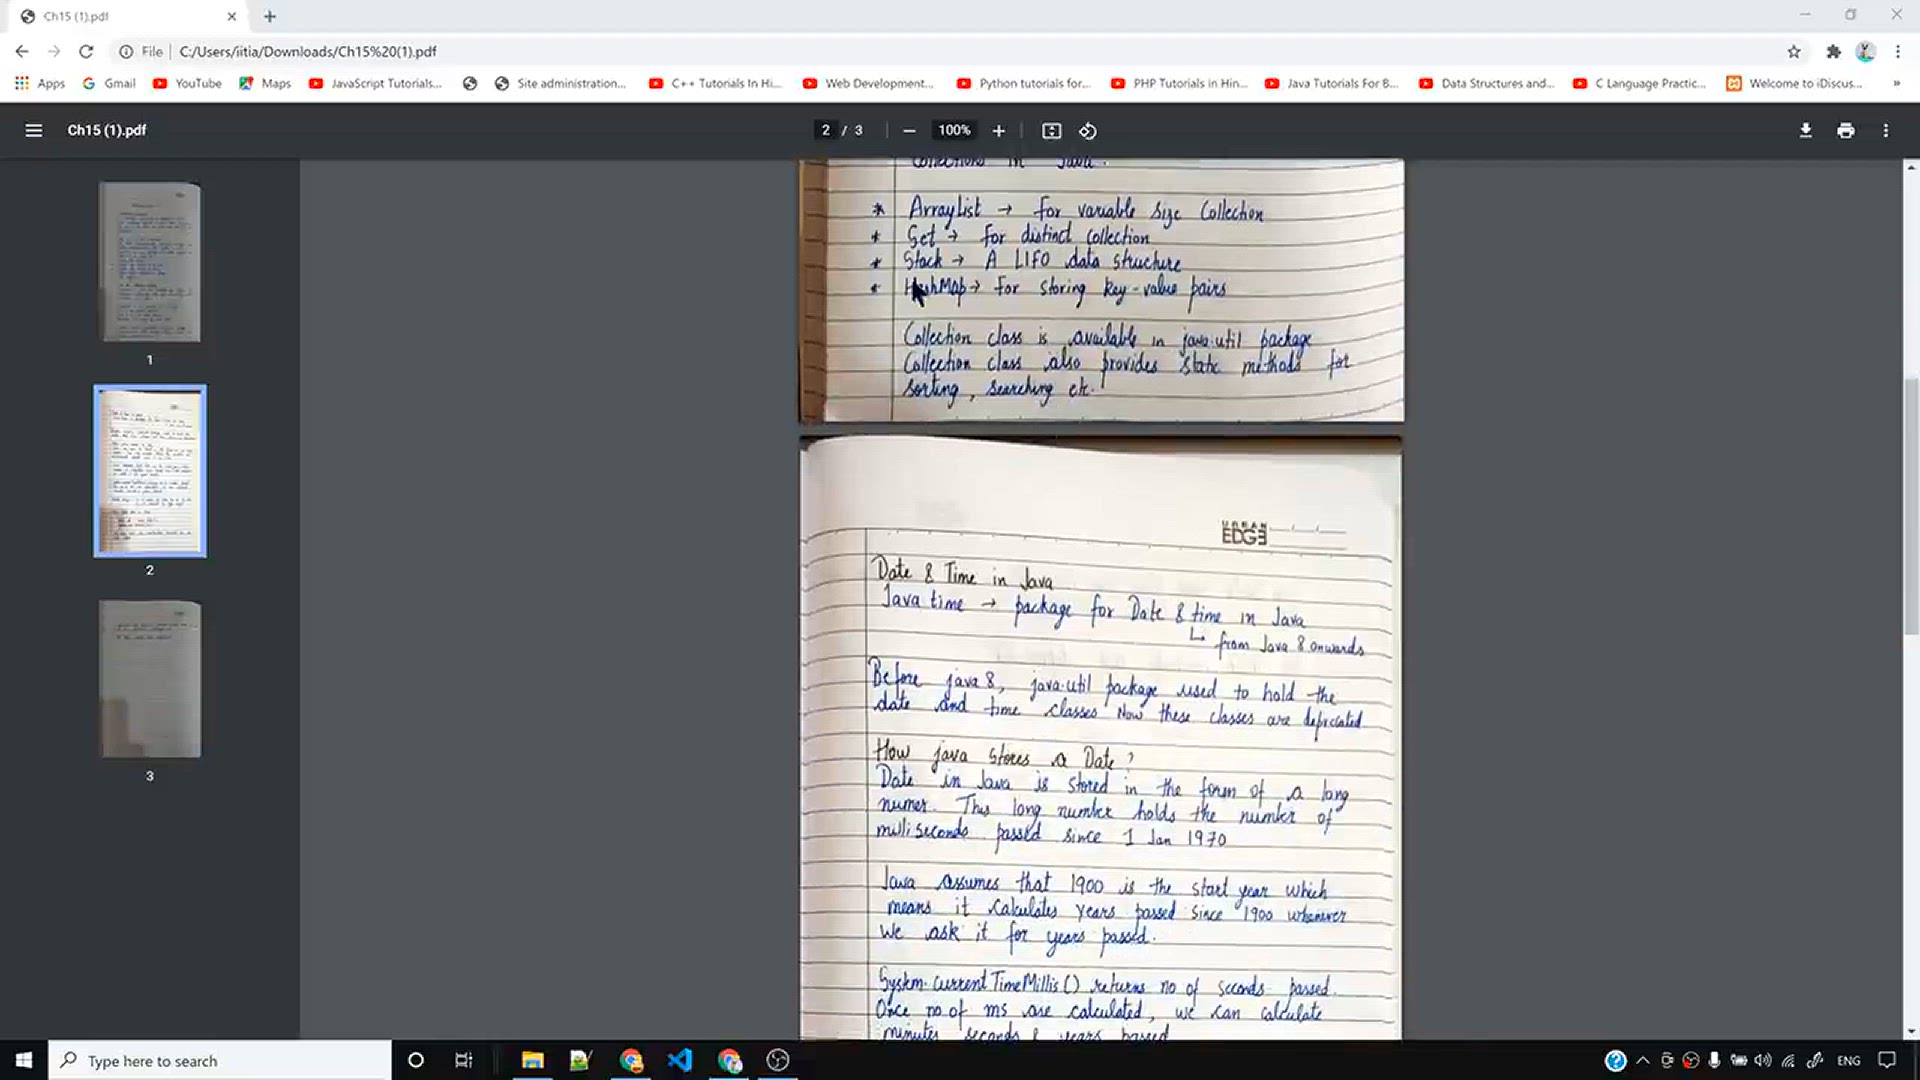 Ch15 (1).pdf
File
C:/Users/iitia/Downloads/Ch15%20(1).pdf
Apps
Gmail
YouTube
Maps
JavaScript Tutorials...
Site administration...
C++ Tutorials In Hi...
Web Development...
Python tutorials for...
PHP Tutorials in Hin...
Java Tutorials For B...
Data Structures and...
C Language Practic...
Welcome to iDiscus...
»
Ch15 (1).pdf
2 / 3
100%
1
2
3
Collections in Java.
* ArrayList → For variable size Collection
* Set → for distinct collection
* Stack → A LIFO data structure
* HashMap → For storing key-value pairs
Collection class is available in java.util package
Collection class also provides static methods for
sorting, searching etc.
URBAN
EDGE
Date & Time in Java
Java time → package for Date & time in Java
↳ from Java 8 onwards
Before java 8, java.util package used to hold the
date and time classes Now these classes are depriciated
How java stores a Date?
Date in Java is stored in the form of a long
numer. This long number holds the number of
milliseconds passed since 1 Jan 1970
Java assumes that 1900 is the start year which
means it calculates years passed since 1900 whenever
we ask it for years passed.
System.currentTimeMillis() returns no of seconds passed.
Once no. of ms are calculated, we can calculate
minutes, seconds & years passed
Type here to search
ENG